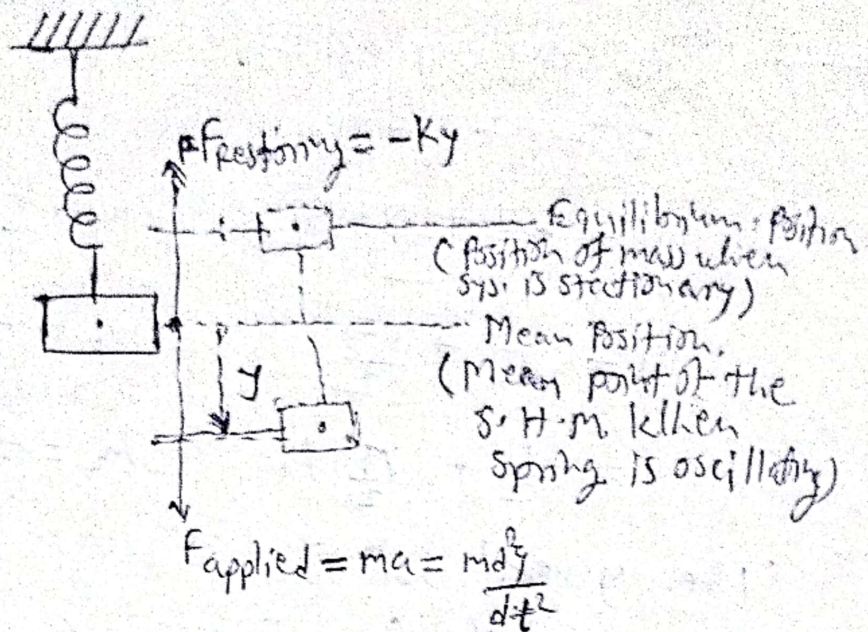 FRestoring = -Ky
Equilibrium position
(Position of mass when
sys. is stectionary)
Mean Position.
(Mean point of the
y
S.H.M. When
spring is oscillating)
Fapplied = ma = md²y
dt²